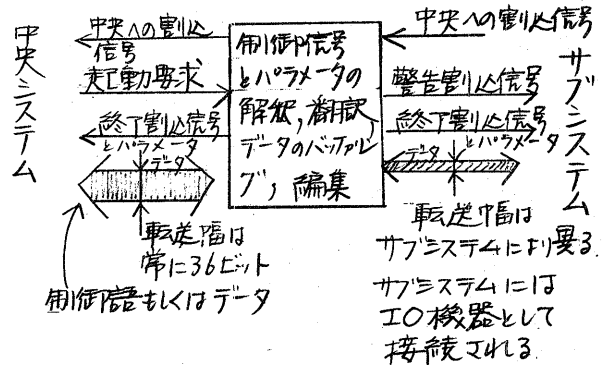 中央システム
中央への割込
信号
起動要求
終了割込信号
とパラメータ
データ
転送幅は
常に36ビット
制御語もしくはデータ
制御信号
とパラメータの
解釈,翻訳,
データのバッファリン
グ,編集
中央への割込信号
警告割込信号
終了割込信号
とパラメータ
データ
サブシステム
転送巾幅は
サブシステムにより異る.
サブシステムには
IO機器として
接続される